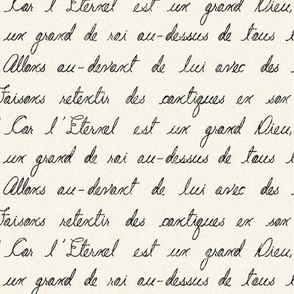 Car l'Eternel est un grand Dieu,
un grand de roi au-dessus de tous
Allons au-devant de lui avec des
Faisons retentir des cantiques en son
Car l'Eternel est un grand Dieu,
un grand de roi au-dessus de tous
Allons au-devant de lui avec des
Faisons retentir des cantiques en son
Car l'Eternel est un grand Dieu,
un grand de roi au-dessus de tous